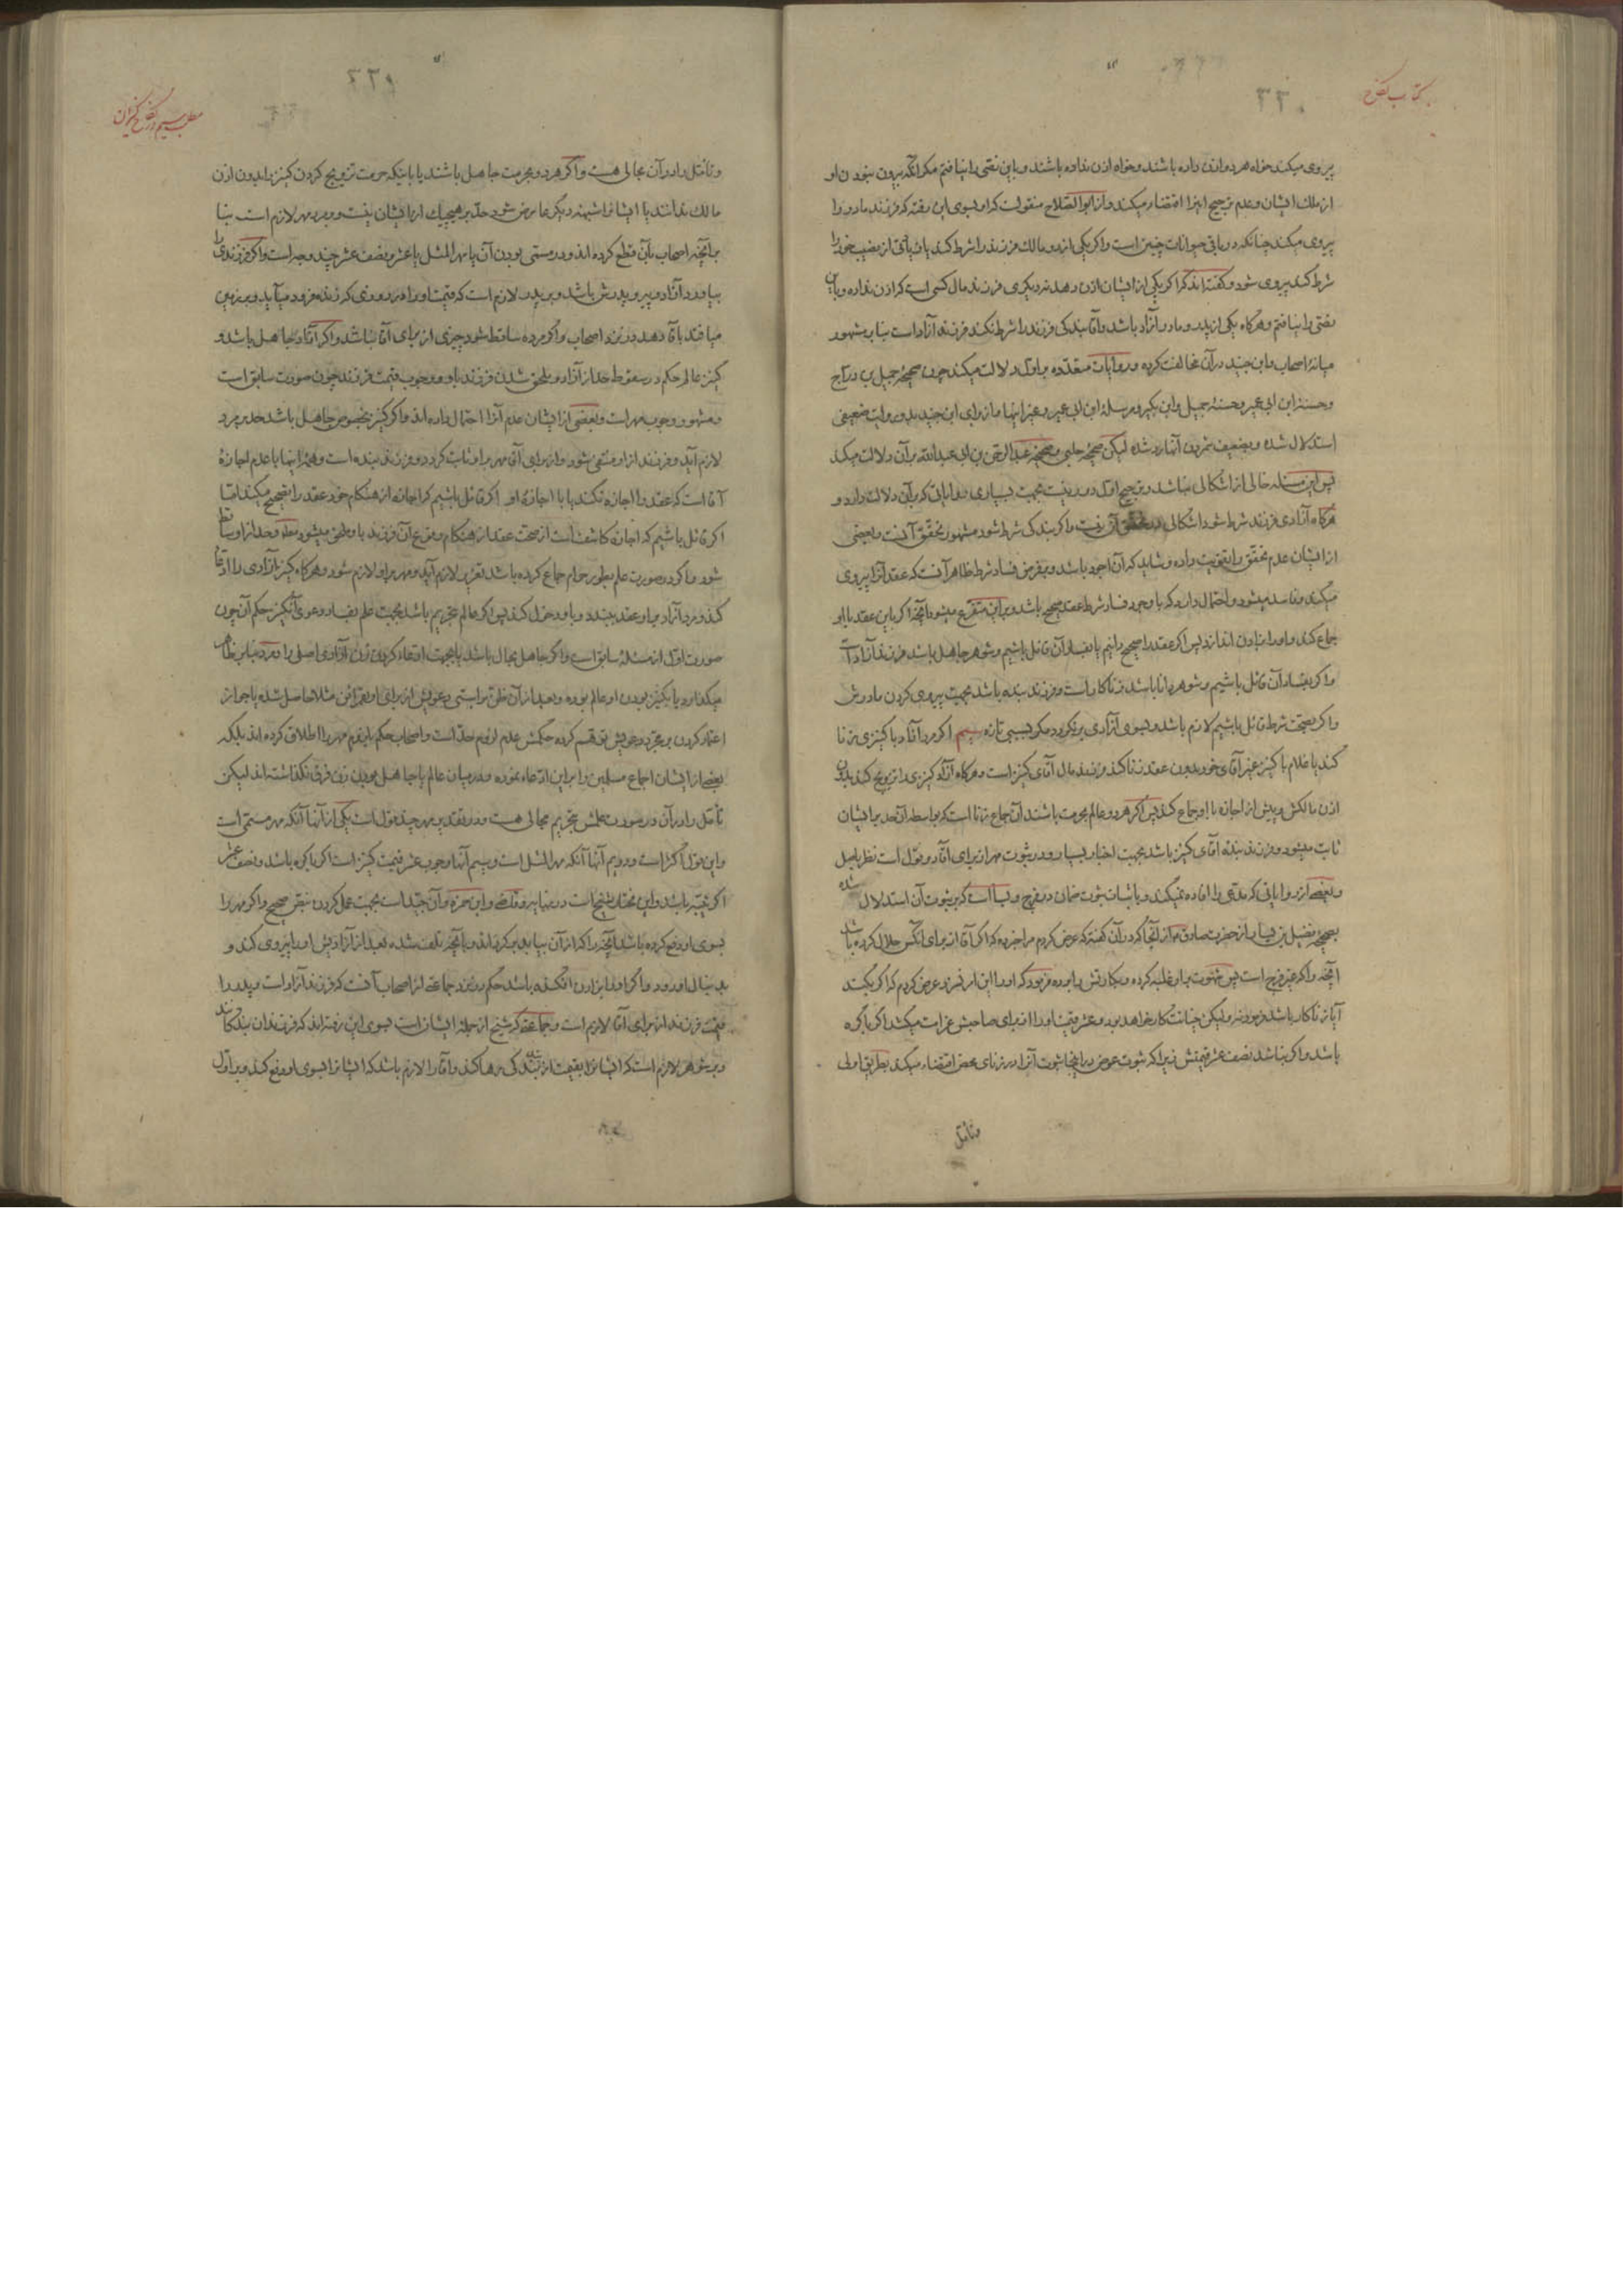 کتاب نکاح
۳۳۰
پیروی میکند خواه هر دو اذن داده باشند و خواه اذن نداده باشند و باین نصّی را نیافتم مکر آنکه بیرون نبودن او
از ملک ایشان و عدم ترجیح اینرا اقتضاء میکند و از ابو الصّلاح منقولست که او بسوی این رفته که فرزند مادر را
پیروی میکند چنانکه در باقی حیوانات چنین است و اکر یکی از دو مالک فرزند را شرط کند یا زیادتی از نصیب خود را
شرط کند پیروی شود و کفته‌اند که اکر یکی از ایشان اذن دهد نه دیکری فرزند مال کسی است که اذن نداده و باین
نصّی را نیافتم و هرکاه یکی از پدر و مادر آزاد باشد و آقا بندکی فرزند را شرط نکند فرزند آزاد است بنابر مشهور
میانهٔ اصحاب و ابن جنید در آن مخالفت کرده و روایات متعدّده بر اوّل دلالت میکند چون صحیحهٔ جمیل بن درّاج
و حسنهٔ ابن ابی عمیر و حسنهٔ جمیل و ابن بکیر و مرسلهٔ ابن ابی عمیر و غیر اینها و از برای ابن جنید بدو روایت ضعیفی
استدلال شده و بضعیف شمردن آنها رد شده لیکن صحیحهٔ حلبی و صحیحهٔ عبد الرّحمن بن ابی عبد الله بر آن دلالت میکند
پس این مسئله خالی از اشکالی نباشد و ترجیح اوّل دور نیست بجهت بسیاری روایاتی که بر آن دلالت دارد و
هرکاه آزادی فرزند شرط شود اشکالی در تحقّق آن نیست و اکر بندکی شرط شود مشهور تحقّق آنست و بعضی
از ایشان عدم تحقّق را تقویت داده و شاید که آن اجود باشد و بفرض فساد شرط ظاهر آنست که عقد آنرا پیروی
میکند و فاسد میشود و احتمال دارد که با وجود فساد شرط عقد صحیح باشد و بر این متفرّع میشود آنچه اکر باین عقد با او
جماع کند و او را بزادن اندازد پس اکر عقد را صحیح دانیم یا بفساد آن قائل باشیم و شوهر جاهل باشد فرزند آزاد است
و اکر بفساد آن قائل باشیم و شوهر دانا باشد زناکار است و فرزند بنده باشد بجهت پیروی کردن مادرش
و اکر بصحّت شرط قائل باشیم لازم باشد و بسوی آزادی برنکردد مکر بسببی تازه سیم اکر مرد آزاد با کنیزی زنا
کند یا غلام با کنیز غیر آقای خود بدون عقد زنا کند فرزند مال آقای کنیز است و هرکاه آزاد کنیزی را تزویج کند بدون
اذن مالکش و پیش از اجازه با او جماع کند پس اکر هر دو عالم بحرمت باشند آن جماع زنا است که بواسطهٔ آن حد بر ایشان
ثابت میشود و فرزند بندهٔ آقای کنیز باشد بجهت اخبار بسیار و در ثبوت مهر از برای آقا دو قول است نظر باصل
و بعضی از روایاتی که مدّعی را افاده نمیکند و باثبات ثبوت ضمان در فرج و بسا است که بر ثبوت آن استدلال شده
بصحیحهٔ فضیل بن یسار از حضرت صادق ع از آنجا که در آن کفته که عرض کردم مرا خبر ده که اکر آقا از برای آنکس حلال کرده باشد
آنچه را که غیر فرج است پس شهوت بر او غلبه کرده و بکارتش را بوده فرمود که او را این امر نرسد عرض کردم که اکر بکند
آیا زناکار باشد فرمود نه و لیکن خیانت‌کار خواهد بود و عشر قیمت او را از برای صاحبش غرامت میکشد اکر باکره
باشد و اکر نباشد نصف عشر قیمتش زیرا که ثبوت عوض در اینجا ثبوت آنرا در زنای محض اقتضاء میکند بطریق اولی
و تأمّل
مطلب سیم در نکاح کنیزان
۳۳۱
و تأمّل را در آن مجالی هست و اکر هر دو بحرمت جاهل باشند یا باینکه حرمت تزویج کردن کنیز را بدون اذن
مالک ندانند یا ایشانرا شبههٔ دیکر عارض شود حدّ بر هیچیک از ایشان نیست و بر مرد مهر لازم است بنا
بر آنچه اصحاب بآن قطع کرده‌اند و در مسمّی بودن آن یا مهر المثل یا عشر و نصف عشر چند وجه است و اکر فرزندی را
بیاورد آزاد و پیرو پدرش باشد و بر پدر لازم است که قیمت او را در روزی که زنده فرود میآید و بزمین
میافتد بآقا دهد در نزد اصحاب و اکر مرده ساقط شود چیزی از برای آقا نباشد و اکر آزاد جاهل باشد و
کنیز عالم حکم در سقوط حد از آزاد و ملحق شدن فرزند باو و وجوب قیمت فرزند چون صورت سابق است
و مشهور وجوب مهر است و بعضی از ایشان عدم آنرا احتمال داده‌اند و اکر کنیز بخصوص جاهل باشد حد بر مرد
لازم آید و فرزند از او منتفی شود و از برای آقا مهر بر او ثابت کردد و فرزند بنده است و همهٔ اینها با عدم اجازهٔ
آقا است که عقد را اجازه نکند یا با اجازهٔ او اکر قائل باشیم که اجازه از هنکام خود عقد را تصحیح میکند امّا
اکر قائل باشیم که اجازه کاشف است از صحّت عقد از هنکام وقوع آن فرزند باو ملحق میشود مطلقا و حد از او ساقط
شود و اکر در صورت علم بطور حرام جماع کرده باشد تعزیر لازم آید و مهر بر او لازم شود و هرکاه کنیز آزادی را ادّعا
کند و مرد آزاد بر او عقد ببندد و باو دخول کند پس اکر عالم بتحریم باشد بجهت علم بفساد دعوی آن کنیز حکم آن چون
صورت اوّل از مسئلهٔ سابق است و اکر جاهل بحال باشد یا بجهت ادّعاء کردن زن آزادی اصلی را و مرد بنابر ظاهر
میکذارد یا بکنیز بودن او عالم بوده و بعد از آن ظنّ براستی دعویش از برای او بقرائن مثلا حاصل شده یا جواز
اعتماد کردن بر مجرّد دعویش توهّم کرده حکمش عدم لزوم حدّ است و اصحاب حکم بلزوم مهر را اطلاق کرده‌اند بلکه
بعضی از ایشان اجماع مسلمین را بر این ادّعاء نموده و در میان عالم یا جاهل بودن زن فرق نکذاشته‌اند لیکن
تأمّل را در آن در صورت علمش بتحریم مجالی هست و در تقدیر مهر چند قول است یکی از آنها آنکه مهر مسمّی است
و این قول اکثر است و دویم آنها آنکه مهر المثل است و سیم آنها وجوب عشر قیمت کنیز است اکر باکره باشد و نصف عشر
اکر ثیّبه باشد و این مختار شیخ است در نهایه و قاضی و ابن حمزه و آن جیّد است بجهت عمل کردن بنصّ صحیح و اکر مهر را
بسوی او دفع کرده باشد آنچه را که از آن بیابد برکرداند و بآنچه تلف شده بعد از آزادیش او را پیروی کند و
بدنبال او رود و اکر او را بزادن افکنده باشد حکم در نزد جماعتی از اصحاب آنست که فرزند آزاد است و پدر را
قیمت فرزند از برای آقا لازم است و جماعتی که شیخ از جملهٔ ایشان است بسوی این رفته‌اند که فرزندان بندکانند
و بر شوهر لازم است که ایشانرا بقیمت از بندکی رها کند و آقا را لازم باشد که ایشانرا بسوی او دفع کند و بر اوّل